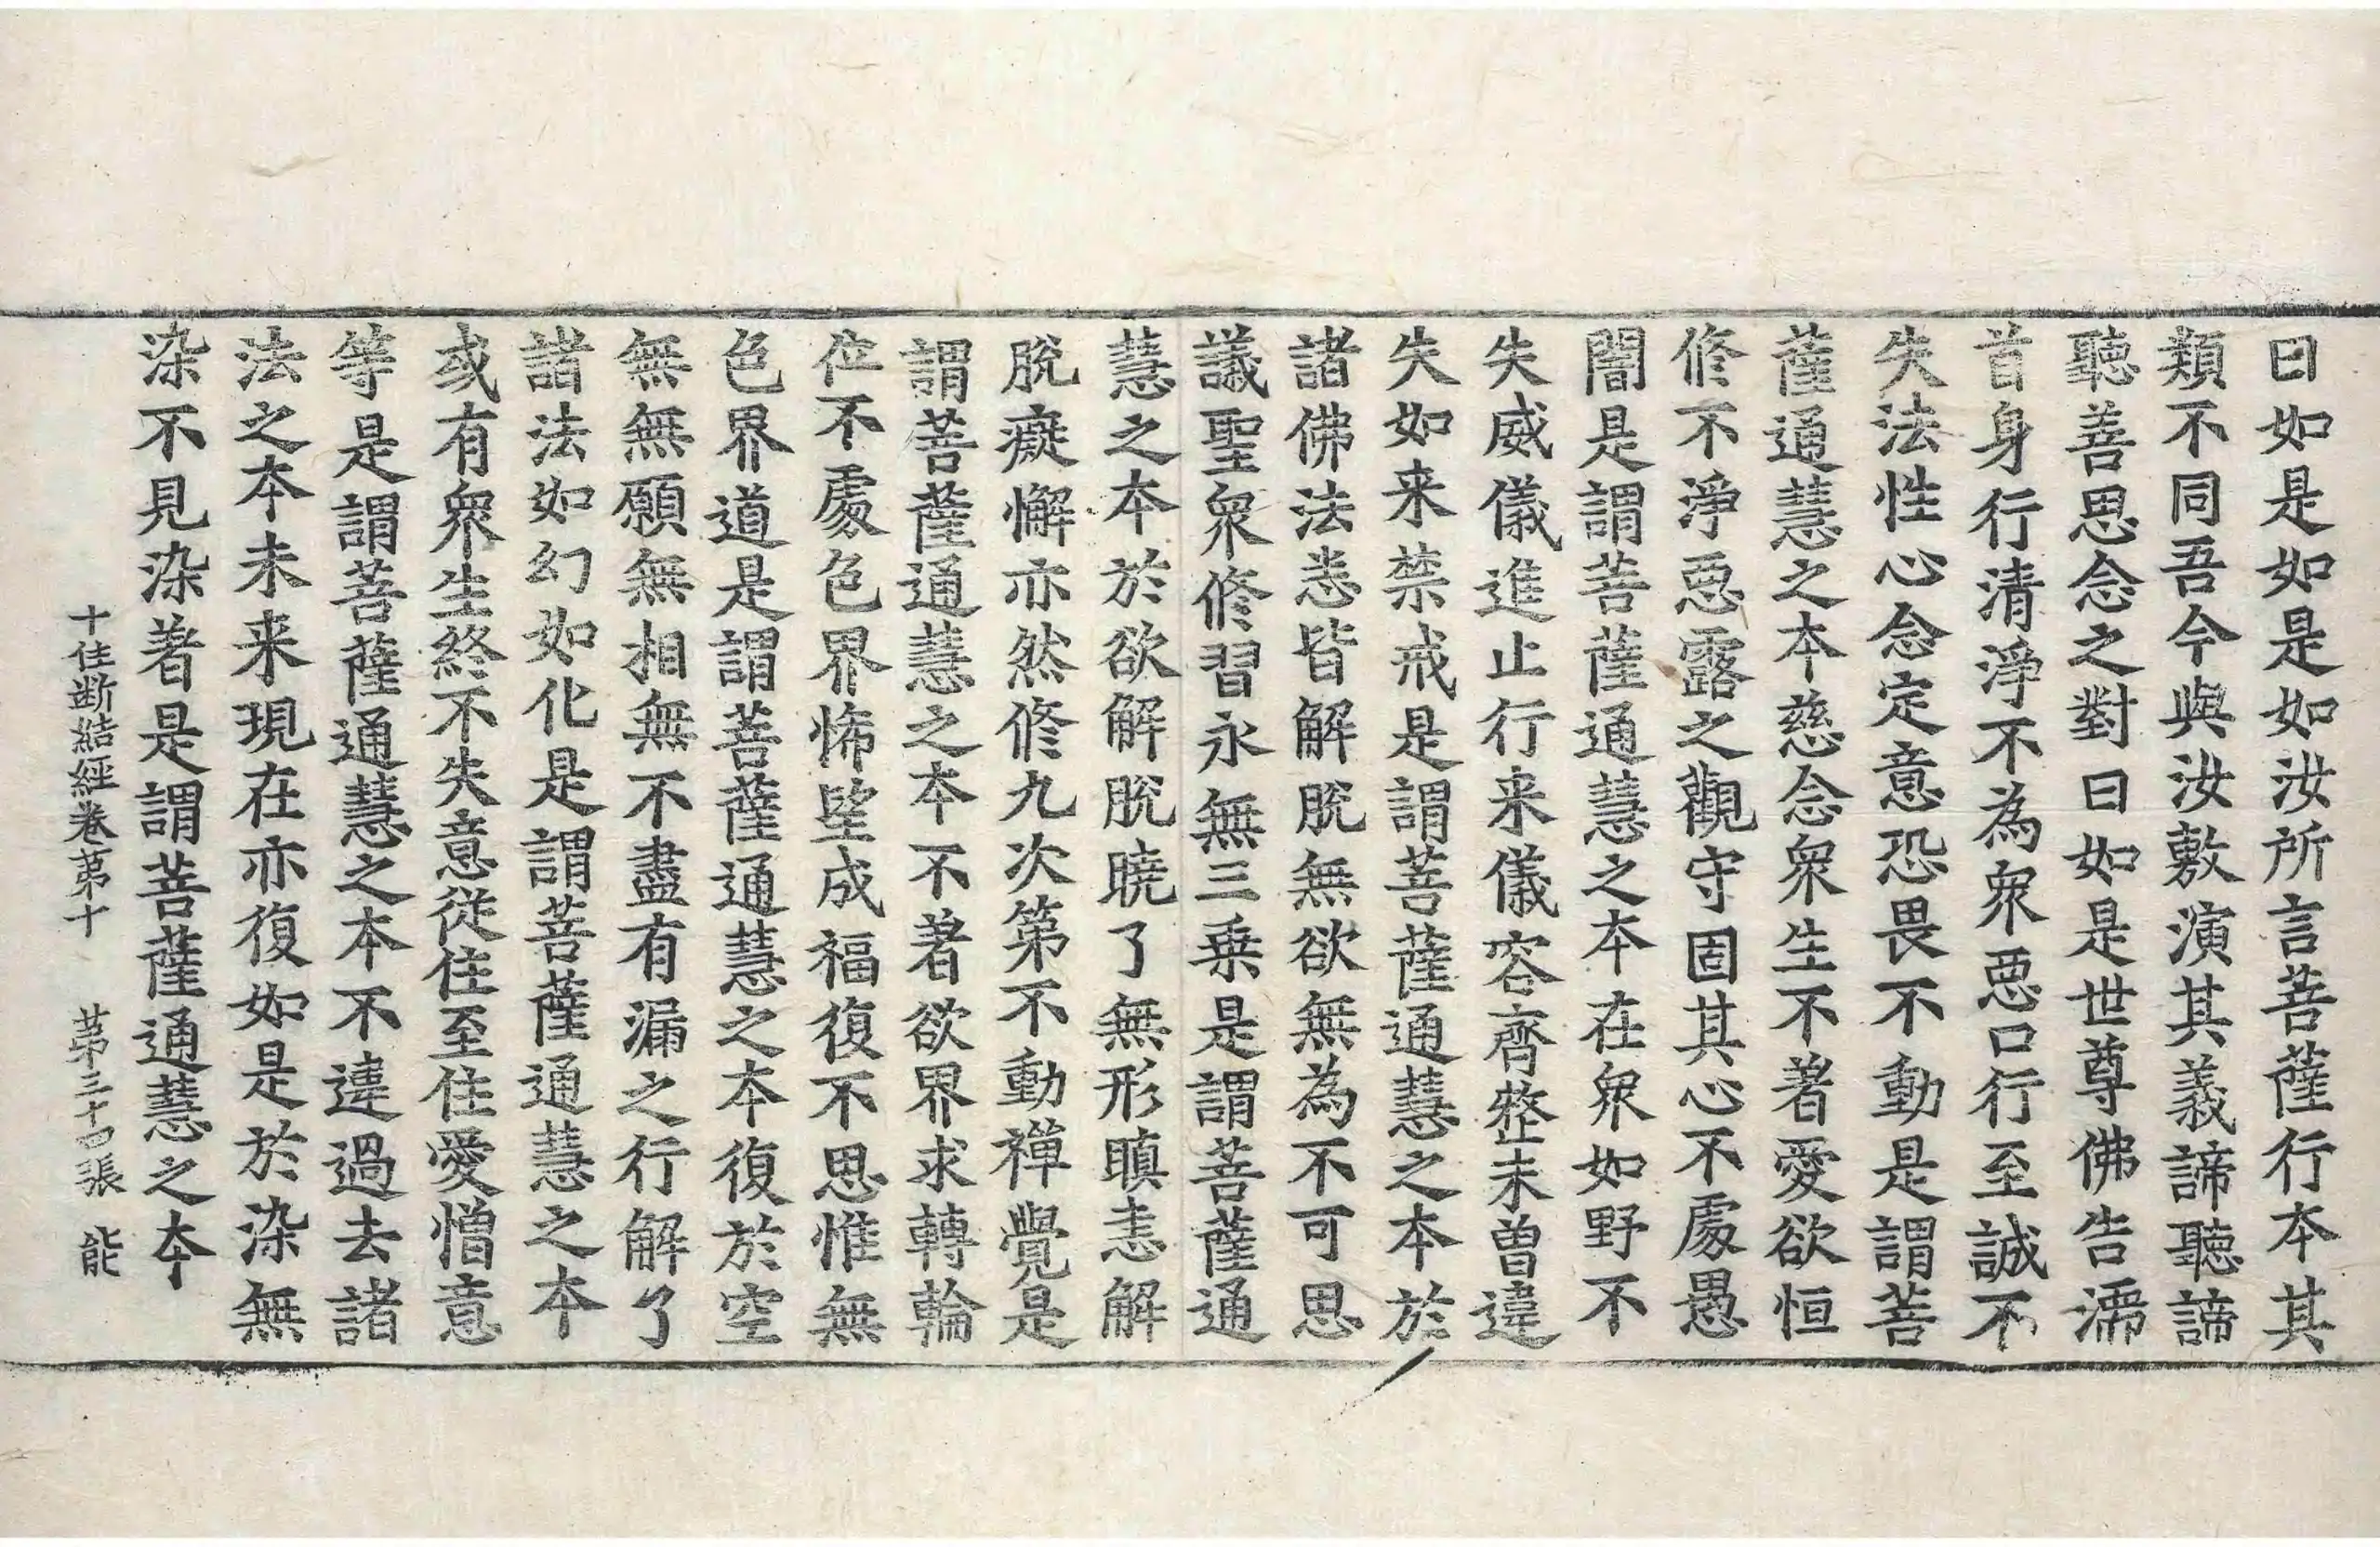 曰如是如是如汝所言菩薩行本其
類不同吾今與汝敷演其義諦聽諦
聽善思念之對曰如是世尊佛告濡
首身行清淨不為衆惡口行至誠不
失法性心念定意恐畏不動是謂菩
薩通慧之本慈念衆生不著愛欲恒
修不淨惡露之觀守固其心不處愚
闇是謂菩薩通慧之本在衆如野不
失威儀進止行来儀容齊整未曾違
失如来禁戒是謂菩薩通慧之本於
諸佛法悉皆解脫無欲無為不可思
議聖衆修習永無三乗是謂菩薩通
慧之本於欲解脫曉了無形瞋恚解
脫癡懈亦然修九次第不動禪覺是
謂菩薩通慧之本不著欲界求轉輪
位不處色界悕望成福復不思惟無
色界道是謂菩薩通慧之本復於空
無無願無相無不盡有漏之行解了
諸法如幻如化是謂菩薩通慧之本
或有衆生終不失意從住至住愛憎意
等是謂菩薩通慧之本不違過去諸
法之本未来現在亦復如是於染無
染不見染著是謂菩薩通慧之本
十住断結經卷第十 第三十四張 能